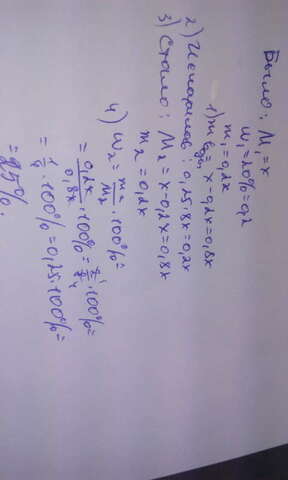 Было: M₁=x
w₁=20%=0,2
m₁=0,2x
1) m воды=x-0,2x=0,8x
2) Испарилось: 0,25·8x=0,2x
3) Стало: M₂=x-0,2x=0,8x
m₂=0,2x
4) w₂=m₂/M₂·100%=
=0,2x/0,8x·100%=2/8·100%=
=1/4·100%=0,25·100%=
=25%.